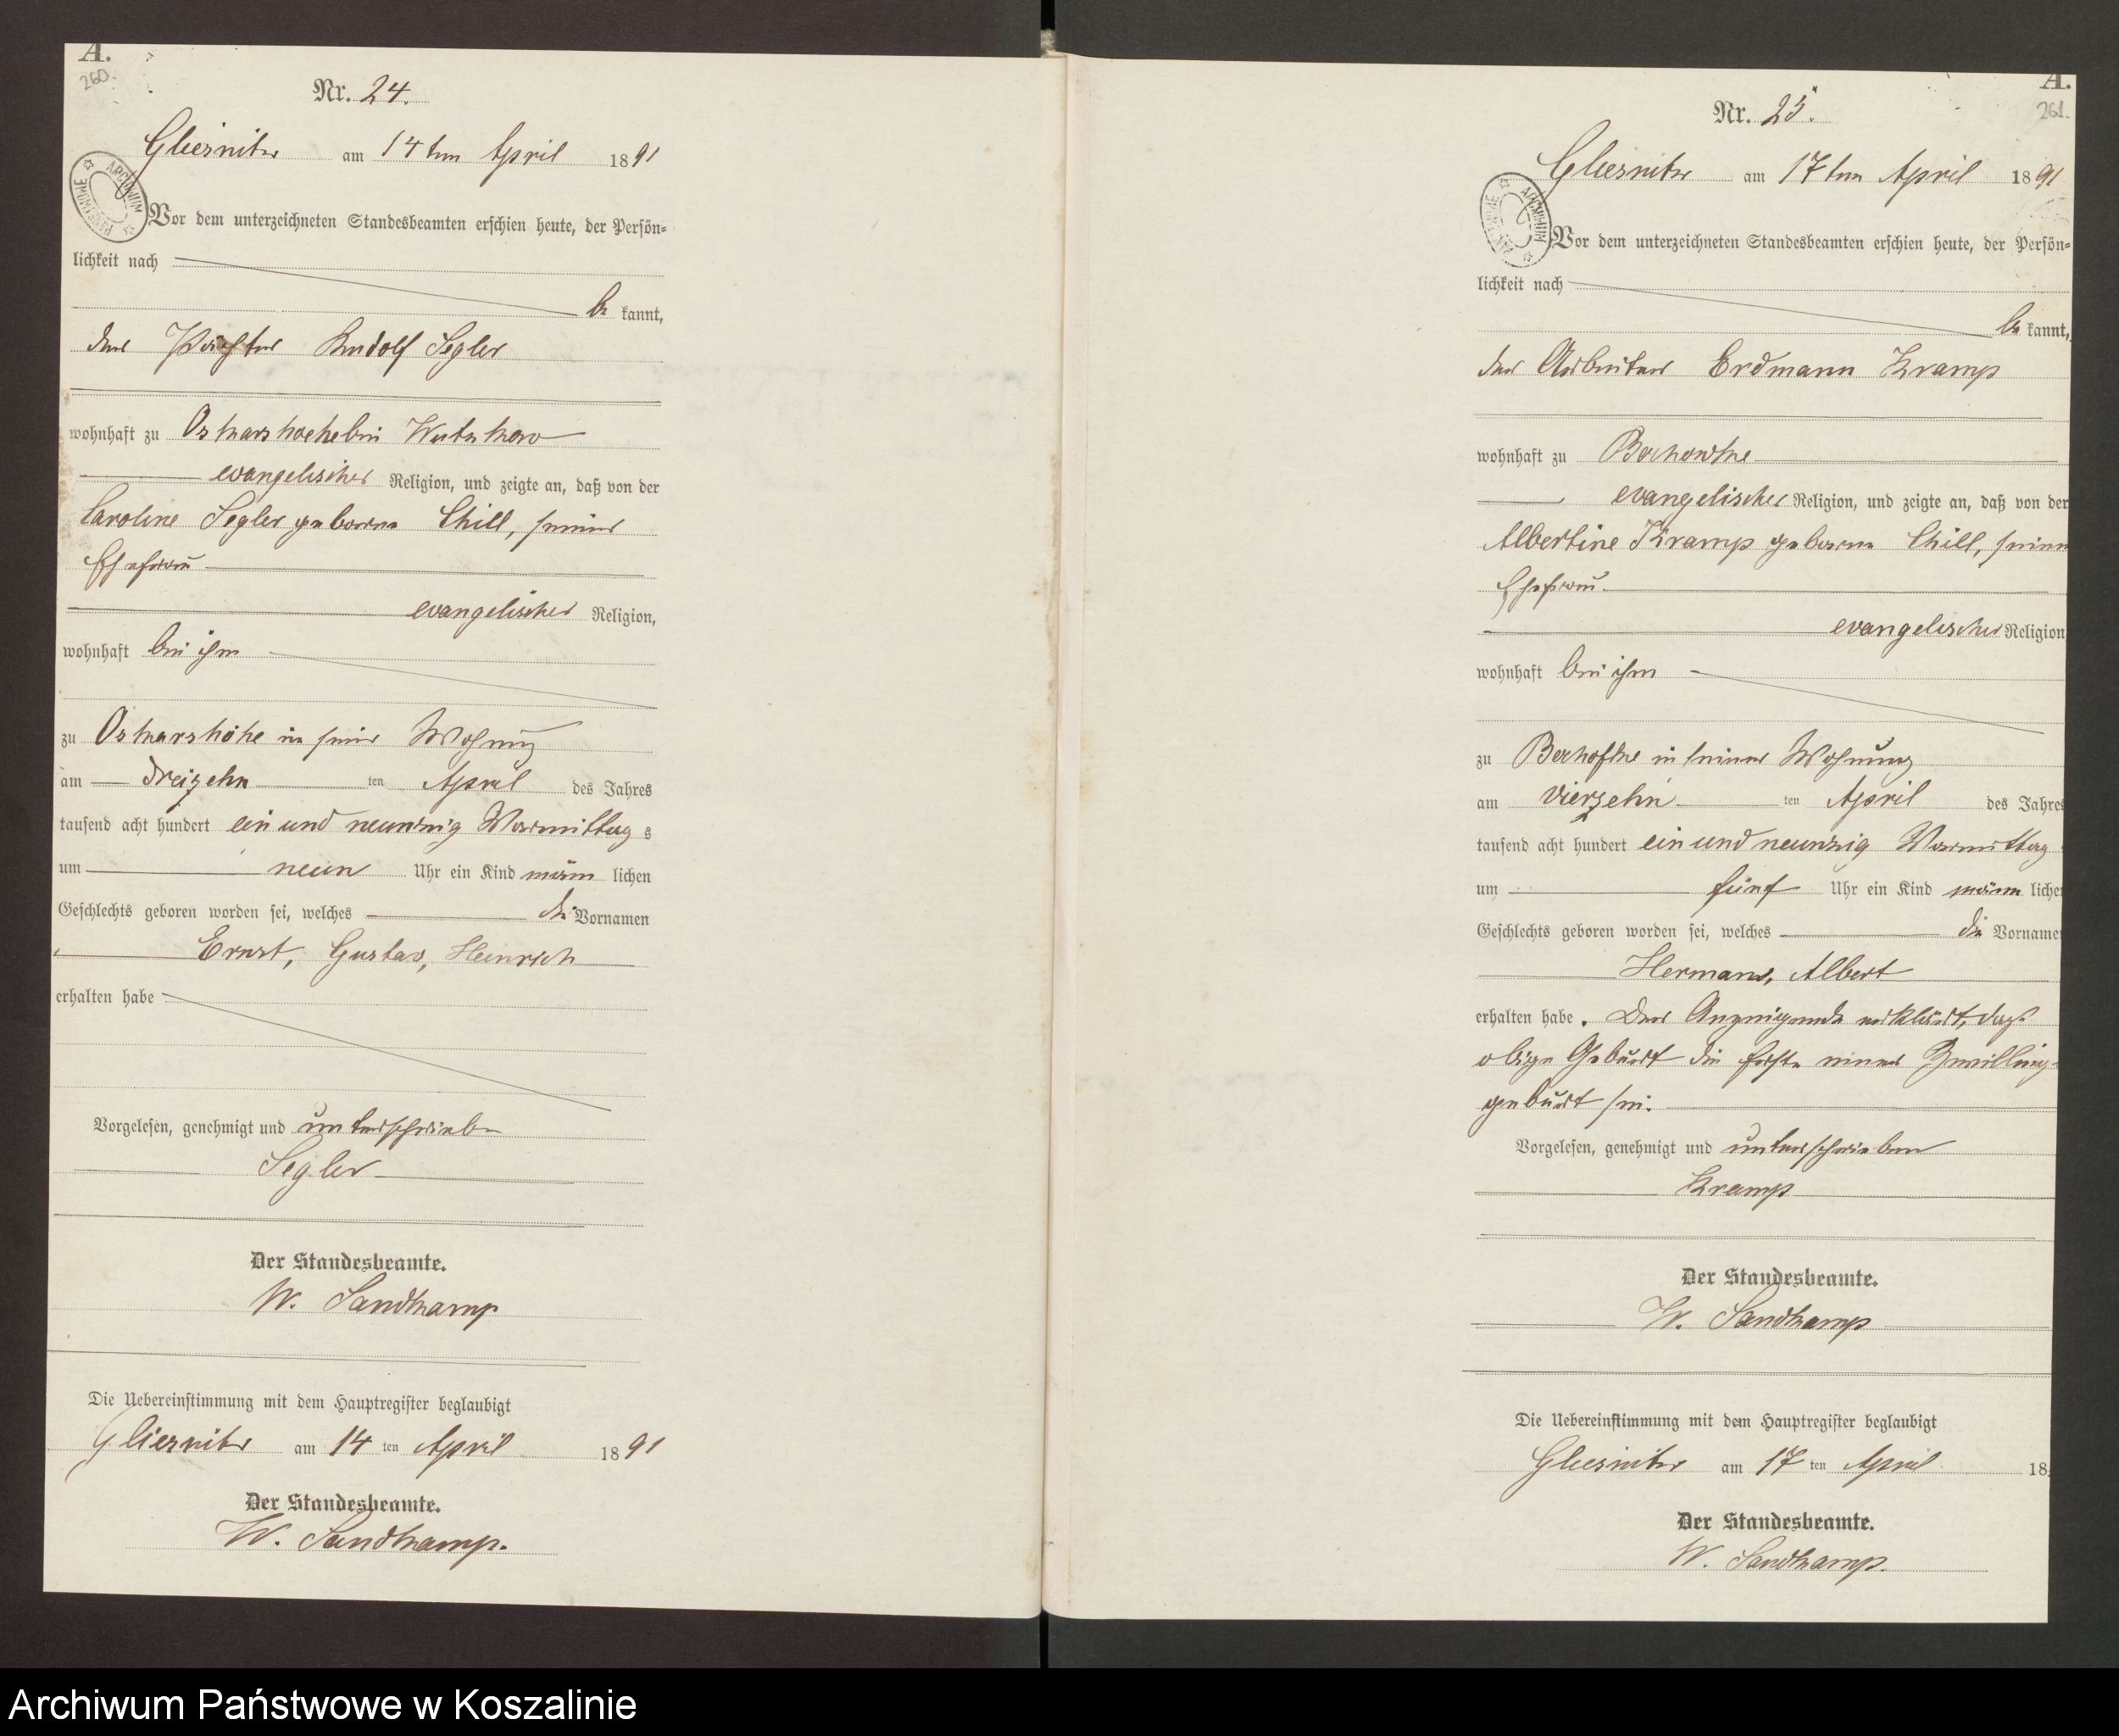 A.
260.
Nr. 24.
Gliesnitz am 14ten April 1891
ARCHIWUM PAŃSTWOWE
Vor dem unterzeichneten Standesbeamten erschien heute, der Persön=
lichkeit nach
be kannt,
der Pächter Rudolf Segler
wohnhaft zu Oskarshoehe bei Wutzkow
evangelischer Religion, und zeigte an, daß von der
Caroline Segler geborene Chill, seiner
Ehefrau
evangelischer Religion,
wohnhaft bei ihm
zu Oskarshöhe in seir Wohnung
am dreizehn ten April des Jahres
tausend acht hundert ein und neunzig Vormittag s
um neun Uhr ein Kind männ lichen
Geschlechts geboren worden sei, welches die Vornamen
Ernst, Gustav, Heinrich
erhalten habe
Vorgelesen, genehmigt und unterschrieben
Segler
Der Standesbeamte.
W. Sandkamp
Die Uebereinstimmung mit dem Hauptregister beglaubigt
Gliesnitz am 14 ten April 1891
Der Standesbeamte.
W. Sandkamp.
A.
261.
Nr. 25.
Gliesnitz am 17ten April 1891
ARCHIWUM
Vor dem unterzeichneten Standesbeamten erschien heute, der Persön=
lichkeit nach
be kannt,
der Arbeiter Erdmann Kramp
wohnhaft zu Bochowke
evangelischer Religion, und zeigte an, daß von der
Albertine Kramp geborne Chill, seiner
Ehefrau
evangelischer Religion
wohnhaft bei ihm
zu in seiner Wohnung
am vierzehn ten April des Jahres
tausend acht hundert ein und neunzig Vormittag
um fünf Uhr ein Kind männ liche
Geschlechts geboren worden sei, welches die Vorname
Hermann, Albert
erhalten habe. Der Anzeigende erklärt, daß
obige Geburt die erste einer Zwilling-
geburt sei.
Vorgelesen, genehmigt und unterschrieben
Kramp
Der Standesbeamte.
W. Sandkamp
Die Uebereinstimmung mit dem Hauptregister beglaubigt
Gliesnitz am 17 ten April 18
Der Standesbeamte.
W. Sandkamp.
Archiwum Państwowe w Koszalinie